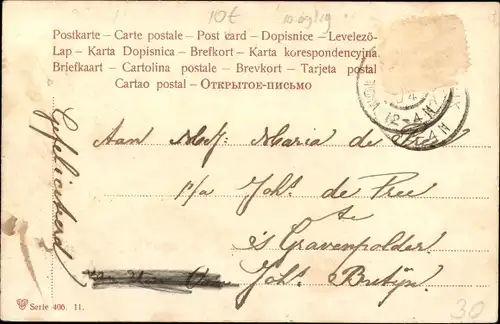 10€
Postkarte – Carte postale – Post card – Dopisnice – Levelezö-
Lap – Karta Dopisnica – Brefkort – Karta korespondencyjna
Briefkaart – Cartolina postale – Brevkort – Tarjeta postal
Cartao postal – ОТКРЫТОЕ-ПИСЬМО
12-4 N
Aan Mej: Maria de
p/a Johs de Pree
te
's Gravenpolder
Johs Bruijn
Gefeliciteerd
Serie 406. 11.
30